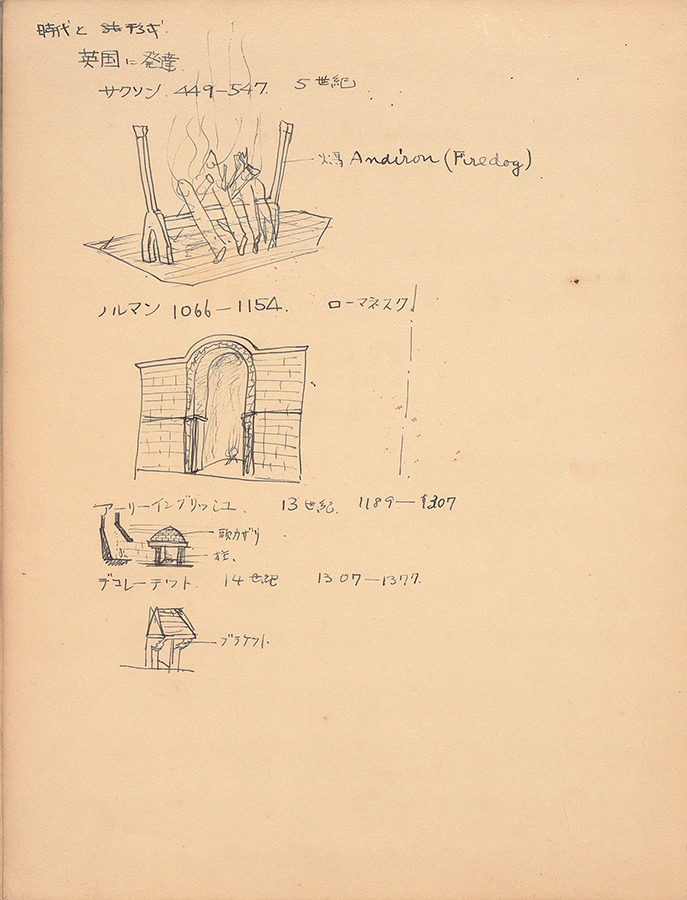 時代と 形式
英国に発達
サクソン 449—547. 5世紀
Andiron (Firedog)
ノルマン 1066—1154. ローマネスク
アーリーイングリッシュ. 13世紀. 1189—1307
頭カザリ
柱.
デコレーテット. 14世紀 1307—1377.
ブラケット.